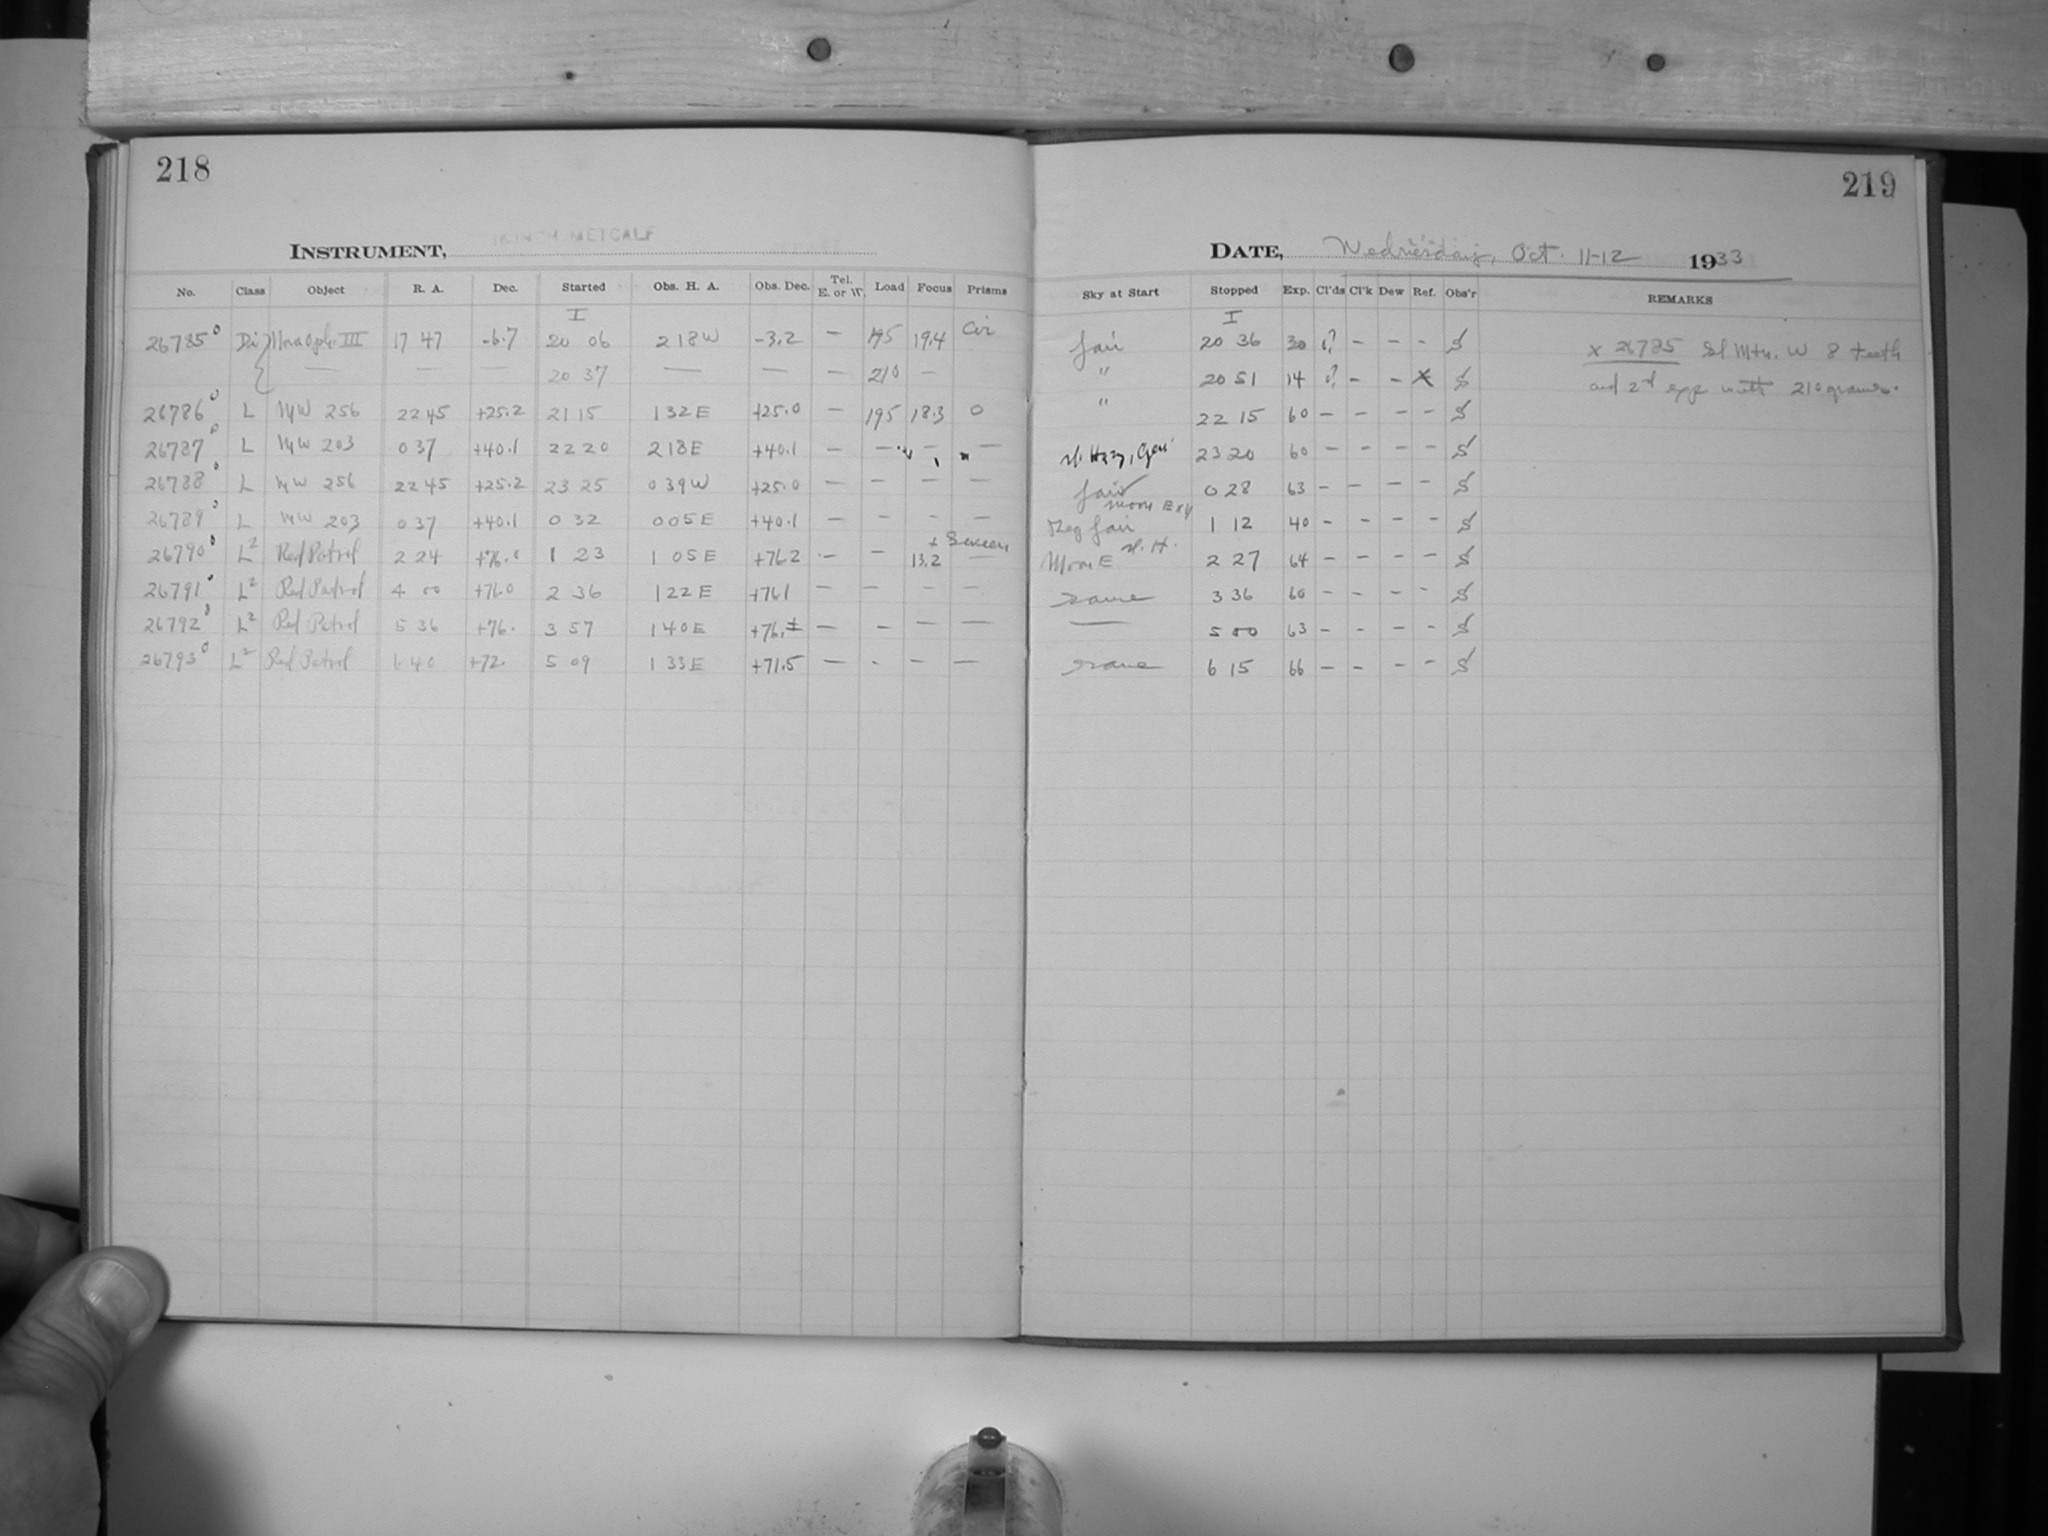 218
INSTRUMENT, METCALF
No. Class Object R. A. Dec. Started Obs. H. A. Obs. Dec. Tel. E. or W. Load Focus Prisms
I
26785 Di Nova Oph. III 17 47 -6.7 20 06 2 18 W -3.2 — 195 19.4 Cir
— — — 20 37 — — — 210 —
26786 L MW 256 22 45 +25.2 21 15 1 32 E +25.0 — 195 18.3 0
26787 L MW 203 0 37 +40.1 22 20 2 18 E +40.1 — — — —
26788 L MW 256 22 45 +25.2 23 25 0 39 W +25.0 — — — —
26789 L MW 203 0 37 +40.1 0 32 0 05 E +40.1 — — — —
+ Screen
26790 L² Red Patrol 2 24 +76.0 1 23 1 05 E +76.2 — — 13.2 —
26791 L² Red Patrol 4 00 +76.0 2 36 1 22 E +76.1 — — — —
26792 L² Red Patrol 5 36 +76. 3 57 1 40 E +76.± — — — —
26793 L² Red Patrol 6 40 +72. 5 09 1 33 E +71.5 — - — —
219
DATE, Wednesday, Oct. 11-12 1933
Sky at Start Stopped Exp. Cl'ds Cl'k Dew Ref. Obs'r REMARKS
I
fair 20 36 30 ? - - - S x 26785 Sl Mtn. W 8 teeth
" 20 51 14 ? - - X S and 2d exp with 210 grams.
" 22 15 60 - - - - S
sl. Hzy, 23 20 60 - - - - S
fair 0 28 63 - - - - S
Moon E
fair 1 12 40 - - - - S
sl. H.
Moon E 2 27 64 - - - - S
same 3 36 60 - - - - S
— 5 00 63 - - - - S
same 6 15 66 - - - - S